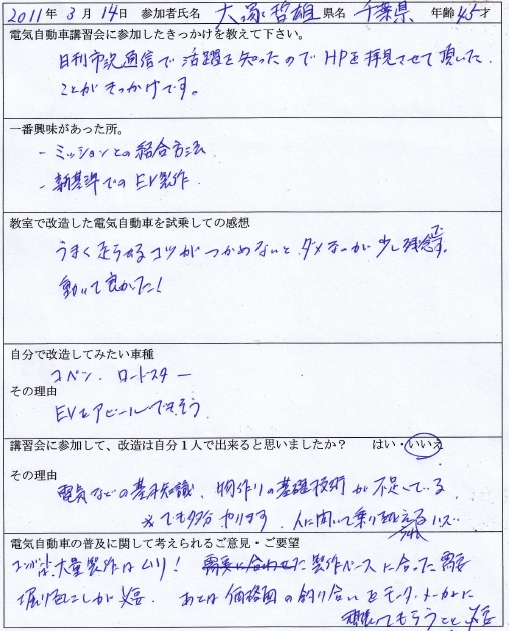 2011年 3月 14日 参加者氏名 大塚哲雄 県名 千葉県 年齢 45才
電気自動車講習会に参加したきっかけを教えて下さい。
日刊市況通信で活躍を知ったのでHPを拝見させて頂いた
ことがきっかけです。
一番興味があった所。
- ミッションとの結合方法
- 新基準でのEV製作
教室で改造した電気自動車を試乗しての感想
うまく走らせるコツがつかめないとダメなのが少し残念です。
動いて良かった!
自分で改造してみたい車種
コペン. ロードスター
その理由
EVをアピールできそう
講習会に参加して、改造は自分1人で出来ると思いましたか? はい・いいえ
その理由
電気などの基本知識、物作りの基礎技術が不足している
※でも多分やります. 人に聞いて乗り越えるハズ…
電気自動車の普及に関して考えられるご意見・ご要望
コンバートは大量製作はムリ! 製作ペースに合った需要
掘り起こしが必要. あとは価格面の釣り合いをモーターメーカーに
頑張ってもらうこと必要